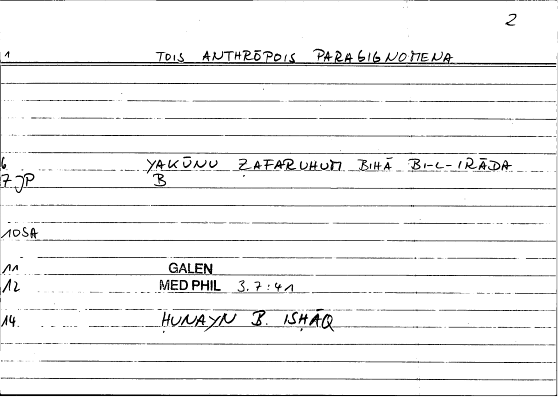 2
1 TOIS ANTHRŌPOIS PARAGIGNOMENA
6 YAKŪNU ẒAFARUHUM BIHĀ BI-L-IRĀDA
7 JP B
10SA
11 GALEN
12 MED PHIL 3.7:41
14 ḤUNAYN B. ISḤĀQ